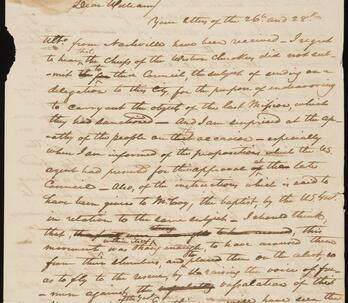 Dear William,
Your letters of the 26th and 28th
Ulto. from Nashville have been received — I regret
to hear, that the Chiefs of the Western Cherokees did not sub-
mit to their Council the subject of sending on a
delegation to this City, for the purpose of endeavoring
to carry out the object of the last Mission, which
they had sanctioned — And I am surprised at the ap-
athy of the people on that occasion — especially
when I am informed of the propositions which the U.S.
agent had pressed for the approval of their late
Council — Also, of the instructions which is said to
have been given to McCoy, the baptist, by the U.S. Govt.
in relation to the same subject — I should think,
that
movements was enough, to have aroused them
from their slumbers, and placed them on the alert, so
as to fly to the rescue, by raising the voice of free-
men against the expulsion of
have seen the